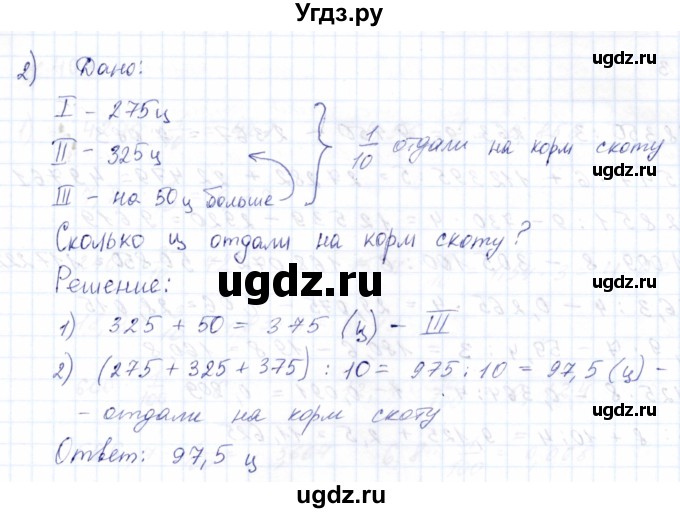 Угдз.ру
ugdz.ru
2) Дано:
I - 275ц
II - 325ц
III - на 50ц больше
1/10 отдали на корм скоту
ugdz.ru
Сколько ц отдали на корм скоту?
ugdz.ru
Решение:
ugdz.ru
1) 325 + 50 = 375 (ц) - III
2) (275 + 325 + 375) : 10 = 975 : 10 = 97,5 (ц) -
- отдали на корм скоту
ugdz.ru
Ответ: 97,5 ц
ugdz.ru
ugdz.ru